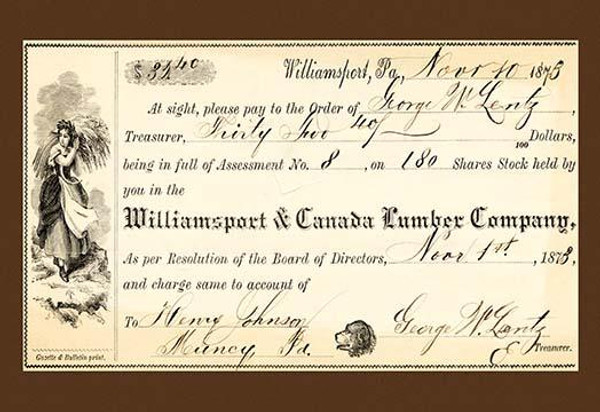 $32.40
Williamsport, Pa, Novr 10 1873
At sight, please pay to the Order of George W. Lentz,
Treasurer, Thirty two 40/100 Dollars,
being in full of Assessment No. 8, on 180 Shares Stock held by
you in the
Williamsport & Canada Lumber Company,
As per Resolution of the Board of Directors, Novr 1st, 1873,
and charge same to account of
To Henry Johnson George W. Lentz
Muncy, Pa. Treasurer.
Gazette & Bulletin print.